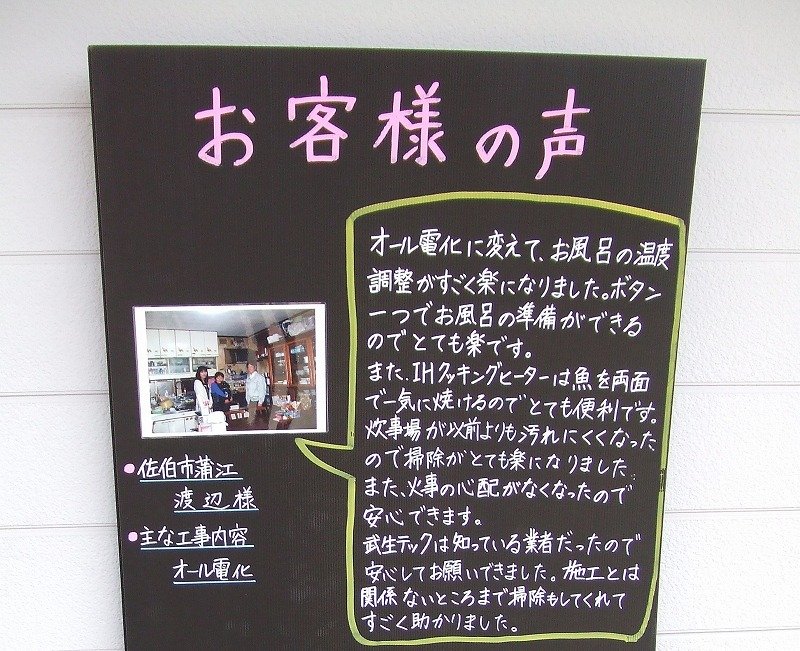 お客様の声
オール電化に変えて、お風呂の温度
調整がすごく楽になりました。ボタン
一つでお風呂の準備ができる
のでとても楽です。
また、IHクッキングヒーターは魚を両面
で一気に焼けるのでとても便利です。
炊事場が以前よりも汚れにくくなった
ので掃除がとても楽になりました
また、火事の心配がなくなったので
安心できます。
武生テックは知っている業者だったので
安心してお願いできました。施工とは
関係ないところまで掃除もしてくれて
すごく助かりました。
•佐伯市蒲江
渡辺様
•主な工事内容
オール電化